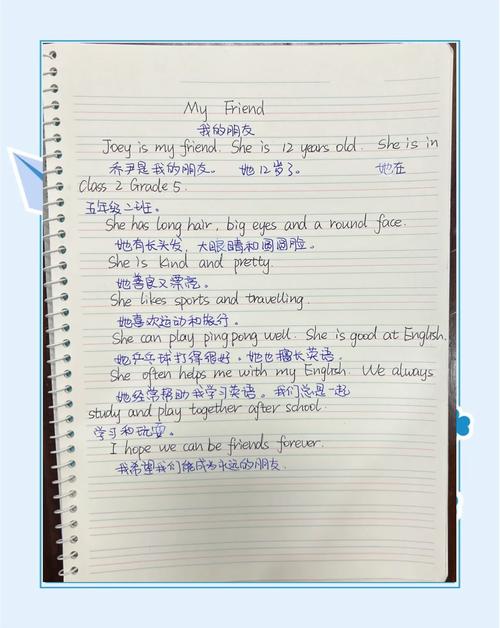 My Friend
我的朋友
Joey is my friend. She is 12 years old. She is in
乔尹是我的朋友。 她12岁了。 她在
Class 2 Grade 5.
五年级二班。
She has long hair, big eyes and a round face.
她有长头发,大眼睛和圆圆脸。
She is kind and pretty.
她善良又漂亮。
She likes sports and travelling.
她喜欢运动和旅行。
She can play pingpong well. She is good at English.
她乒乓球打得很好。她也擅长英语。
She often helps me with my English. We always
她经常帮助我学习英语。我们总是一起
study and play together after school.
学习和玩耍。
I hope we can be friends forever.
我希望我们能成为永远的朋友.